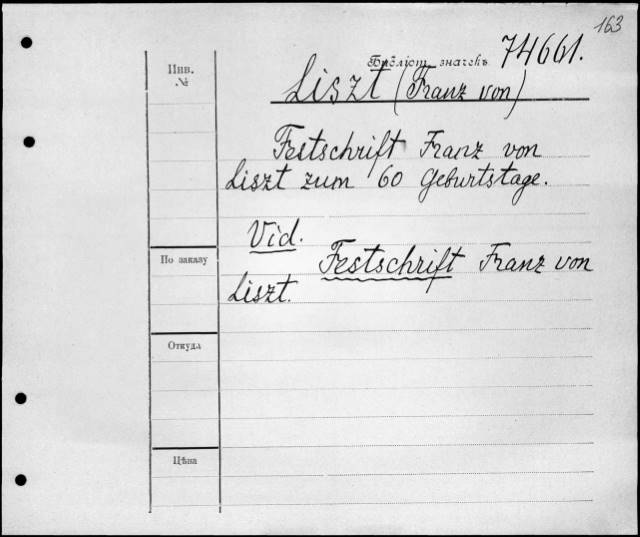 163
Библіот. значекъ 74661.
Инв.
№
Liszt (Franz von)
Festschrift Franz von
Liszt zum 60 Geburtstage.
Vid.
Festschrift Franz von
Liszt.
По заказу
Откуда
Цѣна